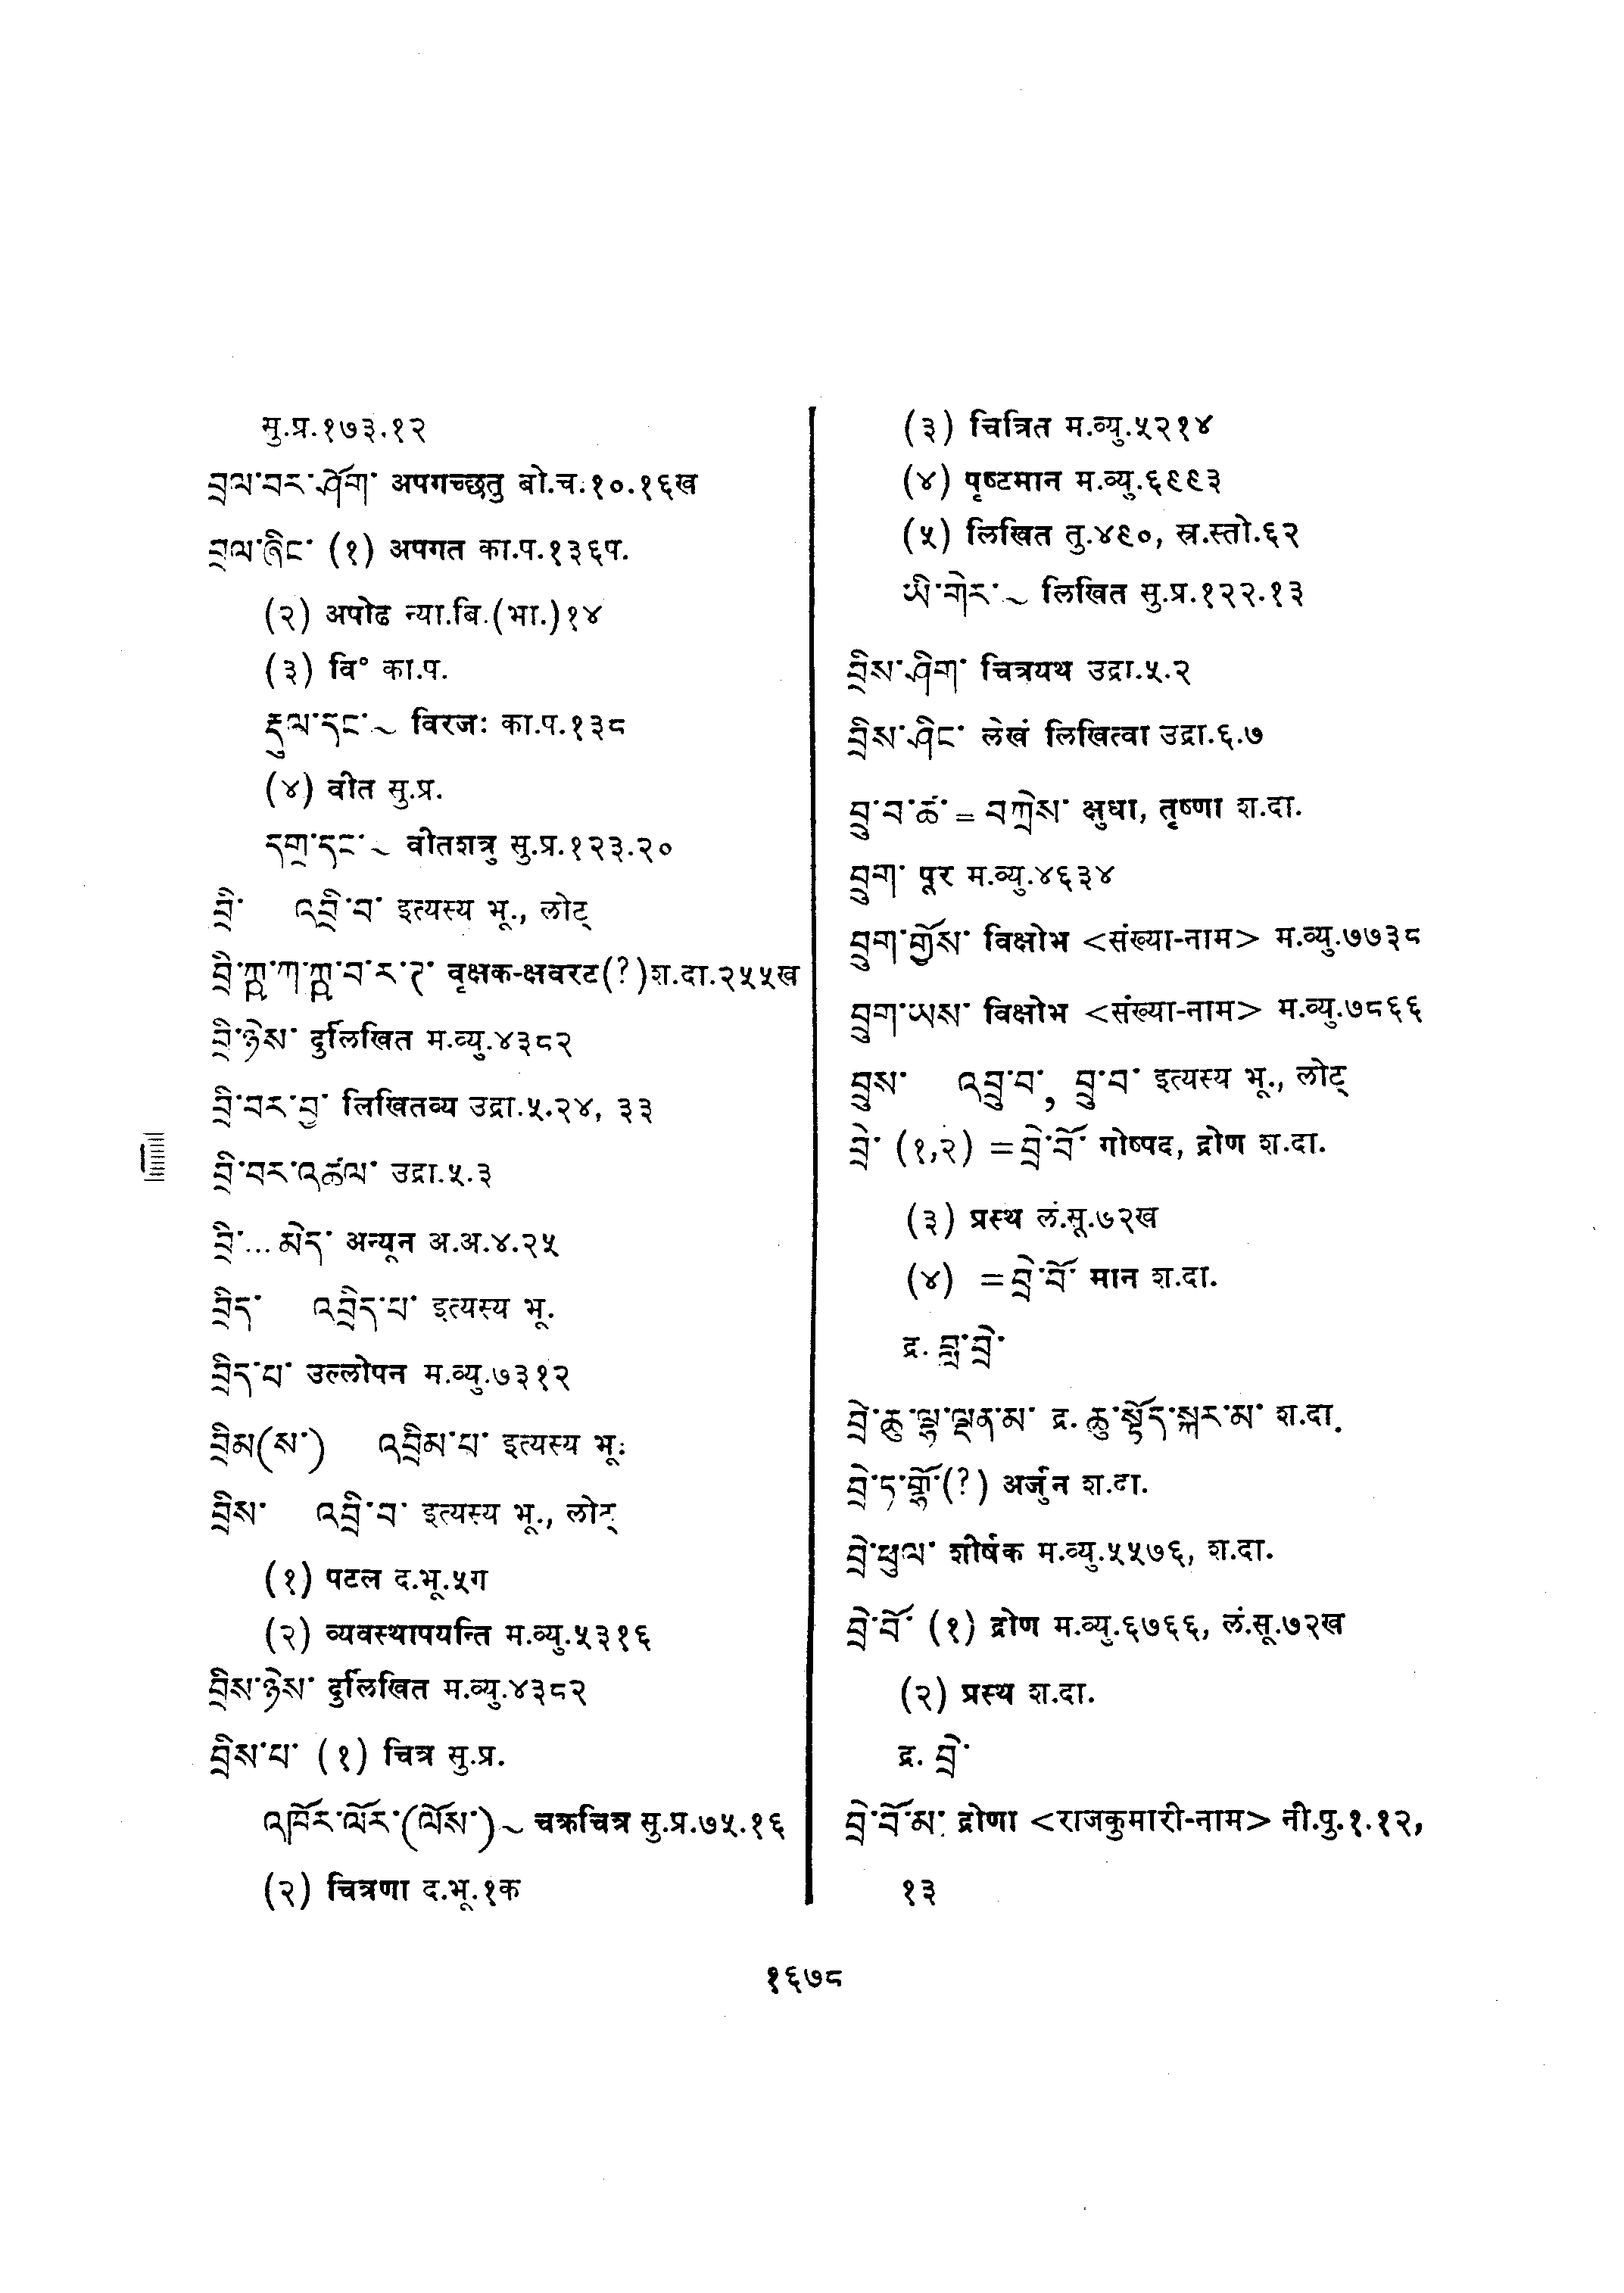 सु.प्र.१७३.१२
བྲལ་བར་ཤོག་ अपगच्छतु बो.च.१०.१६ख
བྲལ་ཞིང་ (१) अपगत का.प.१३६प.
(२) अपोढ न्या.बि.(भा.)१४
(३) वि° का.प.
རྡུལ་དང་~ विरजः का.प.१३८
(४) वीत सु.प्र.
དགྲ་དང་~ वीतशत्रु सु.प्र.१२३.२०
བྲི་ འབྲི་བ་ इत्यस्य भू., लोट्
བྲི་ཀྵ་ཀ་ཀྵ་བ་ར་ཊ་ वृक्षक-क्षवरट(?)श.दा.२५५ख
བྲི་ཉེས་ दुर्लिखित म.व्यु.४३८२
བྲི་བར་བྱ་ लिखितव्य उद्रा.५.२४, ३३
བྲི་བར་འཚལ་ उद्रा.५.३
བྲི་... མེད་ अन्यून अ.अ.४.२५
བྲིད་ འབྲིད་པ་ इत्यस्य भू.
བྲིད་པ་ उल्लोपन म.व्यु.७३१२
བྲིམ(ས་) འབྲིམ་པ་ इत्यस्य भू.
བྲིས་ འབྲི་བ་ इत्यस्य भू., लोट्
(१) पटल द.भू.५ग
(२) व्यवस्थापयन्ति म.व्यु.५३१६
བྲིས་ཉེས་ दुर्लिखित म.व्यु.४३८२
བྲིས་པ་ (१) चित्र सु.प्र.
འཁོར་ལོར་(ལོས་)~ चक्रचित्र सु.प्र.७५.१६
(२) चित्रणा द.भू.१क
(३) चित्रित म.व्यु.५२१४
(४) पृष्टमान म.व्यु.६९९३
(५) लिखित तु.४९०, स्र.स्तो.६२
ཡི་གེར་~ लिखित सु.प्र.१२२.१३
བྲིས་ཤིག་ चित्रयथ उद्रा.५.२
བྲིས་ཤིང་ लेखं लिखित्वा उद्रा.६.७
བྲུ་བ་ཚ་ = བཀྲེས་ क्षुधा, तृष्णा श.दा.
བྲུག་ पूर म.व्यु.४६३४
བྲུག་གྱོས་ विक्षोभ <संख्या-नाम> म.व्यु.७७३८
བྲུག་ཡས་ विक्षोभ <संख्या-नाम> म.व्यु.७८६६
བྲུས་ འབྲུ་བ་, བྲུ་བ་ इत्यस्य भू., लोट्
བྲེ་ (१,२) =བྲེ་བོ་ गोष्पद, द्रोण श.दा.
(३) प्रस्थ लं.सू.७२ख
(४) =བྲེ་བོ་ मान श.दा.
द्र. བླ་བྲེ་
བྲེ་ཆུ་ལྷ་ལྡན་མ་ द्र. ཆུ་སྟོད་སྐར་མ་ श.दा.
བྲེ་ད་ (?) अर्जुन श.दा.
བྲེ་ཕུལ་ शीर्षक म.व्यु.५५७६, श.दा.
བྲེ་བོ་ (१) द्रोण म.व्यु.६७६६, लं.सू.७२ख
(२) प्रस्थ श.दा.
द्र. བྲེ་
བྲེ་བོ་མ་ द्रोणा <राजकुमारी-नाम> नी.पु.१.१२,
१३
१६७८